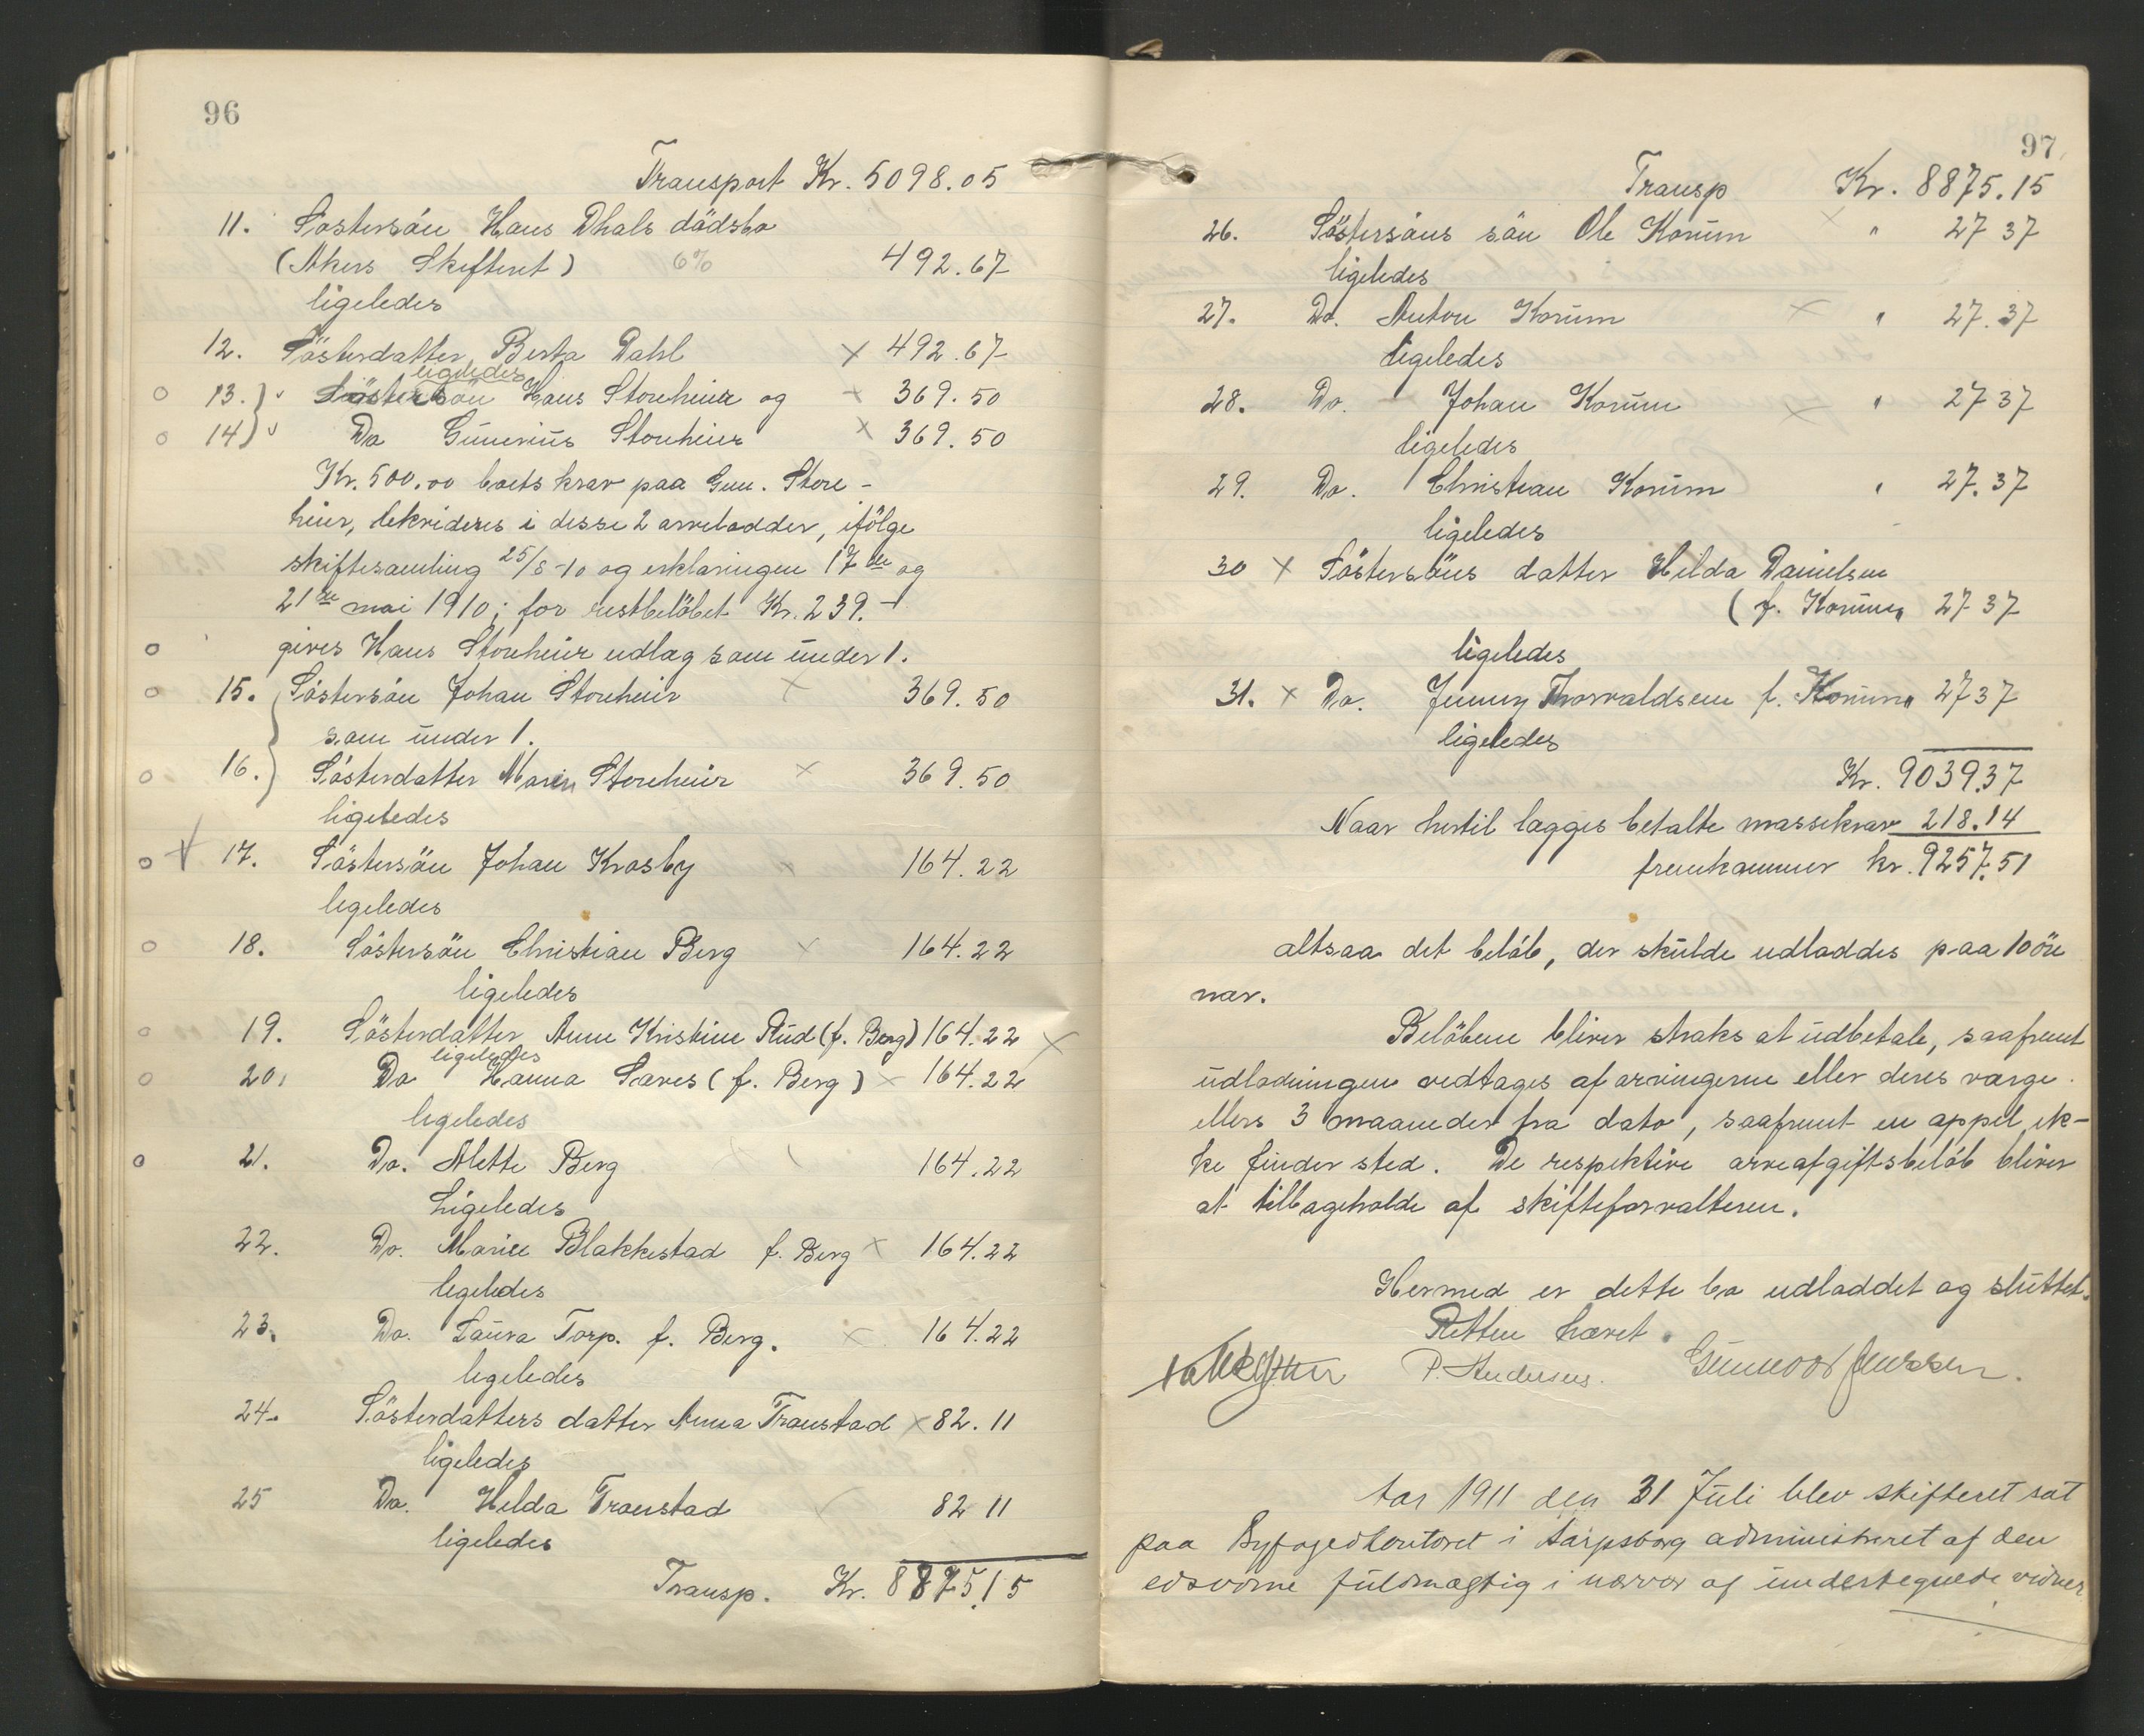 96
Transport Kr. 5098.05
11. Söstersön Hans Dhals dödsbo
(Akers Skifteret) 6% 492.67
ligeledes
12. Sösterdatter Berta Dahl x 492.67
ligeledes
13. Söstersön Hans Storeheier og 369.50
14) Do Gunerius Storeheier x 369.50
Kr. 500.00 boets krav paa Gun. Store-
heier, dekrideres i desse 2 arvelodder, ifölge
skiftesamling 25/5-10 og erklæringen 17de og
21de mai 1910; for restbelöbet Kr. 239.-
gives Hans Storeheier udlæg som under 1.
15. Söstersön Johan Storeheier x 369.50
som under 1.
16. Sösterdatter Maren Storeheier x 369.50
ligeledes
17. Söstersön Johan Krosby x 164.22
ligeledes
18. Söstersön Christian Berg x 164.22
ligeledes
19. Sösterdatter Anne Kristine Rud (f. Berg) 164.22 x
ligeledes
20. Do Hanna Sares (f. Berg) x 164.22
ligeledes
21. Do. Alette Berg 164.22
Ligeledes
22. Do. Marie Blakkestad f. Berg x 164.22
ligeledes
23. Do. Laura Torp. f. Berg. x 164.22
ligeledes
24. Sösterdatters datter Anna Traustad x 82.11
ligeledes
25 Do. Hilda Traustad 82 11
ligeledes
Transp. Kr. 8875.15
97
Transp Kr. 8875.15
26. Söstersöns sön Ole Korum x " 27 37
ligeledes
27. Do. Anton Korum x " 27.37
ligeledes
28. Do. Johan Korum x " 27 37
ligeledes
29. Do. Christian Korum " 27.37
ligeledes
30 x Söstersöns datter Hilda Danielsen
(f. Korum " 27 37
ligeledes
31. x Do. Jenny Thorvaldsen f. Korum " 27 37
ligeledes
Kr. 9039.37
Naar hertil lægges betalte massekrav 218.14
fremkommer kr. 9257.51
altsaa det belöb, der skulde udloddes paa 10 öre
nær.
Belöbene bliver straks at udbetale, saafremt
udlodningen vedtages af arvingerne eller deres værge
ellers 3 maaneder fra dato, saafremt en appel ik-
ke finder sted. De respektive arveafgiftsbelöb bliver
at tilbageholde af skifteforvalteren.
Hermed er dette bo udloddet og sluttet.
Retten hævet.
P. Andersens. Gunvor Jenssen.
Aar 1911 den 31 Juli blev skifteret sat
paa Byfogedkontoret i Sarpsborg administreret af den
edsvorne fuldmægtig i nærvær af undertegnede vidner